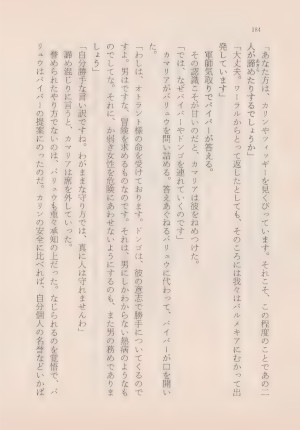 「あなた方は、カリンやフィッダーを見くびっています。それこそ、この程度のことであの二
人が諦めたりするでしょうか」
「大丈夫。ローラルからとって返したとしても、そのころには我々はバルメキアにむかって出
発しています」
軍師気取りでバイパーが答える。
その認識こそが甘いのだと、カマリアは彼をねめつけた。
「では、なぜバイパーとドンゴを連れていくのです」
カマリアがバリュウを問い詰める。答えあぐねるバリュウに代わって、バイパーが口を開い
た。
「わしは、オトラント様の命を受けております。ドンゴは、彼の意志で勝手についてくるので
すよ。男はですな、冒険を求めるものなのです。それは、男にしかわからない熱病のようなも
のでしてな。それに、か弱き女性を危険にあわせないようにするのも、また男の務めでありま
しょう」
「自分勝手な言い訳ですね。わがままな守り方では、真に人は守れませんわ」
諦め混じりに言うと、カマリアは席を外していった。
責められるやり方でないのは、バリュウも重々承知の上だった。なじられるのを覚悟で、バ
リュウはバイパーの提案にのったのだ。カリンの安全に比べれば、自分個人の名誉などいかば
184